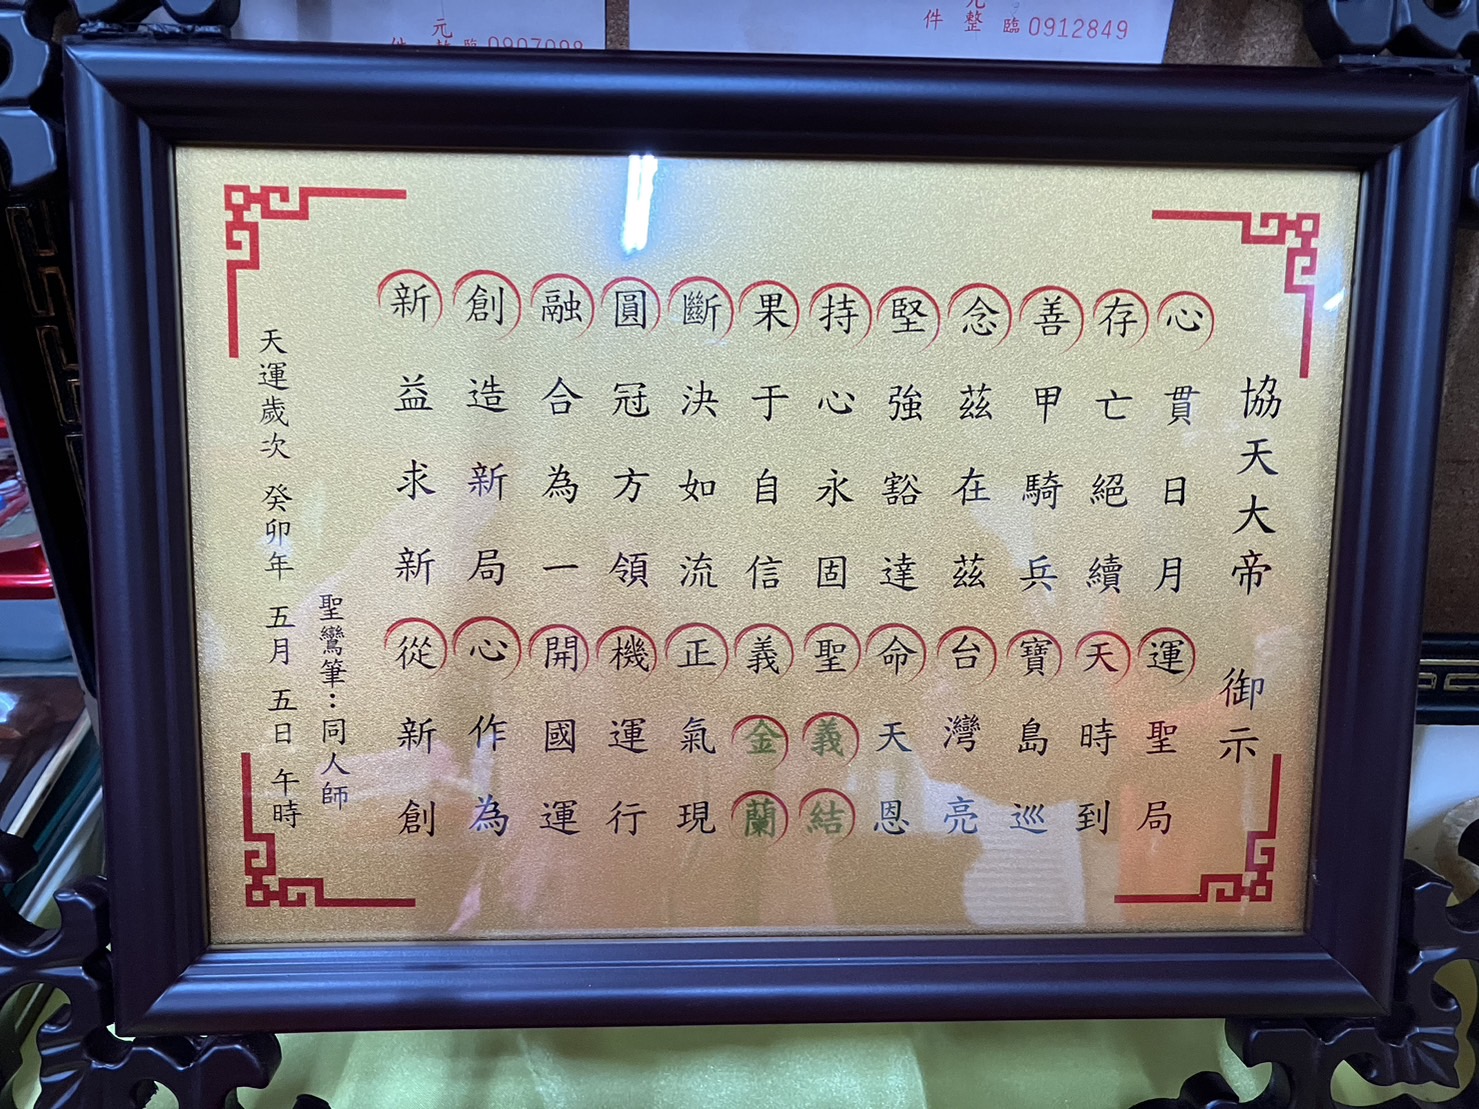 元
整
件
臨0907098
元
整
件
臨0912849
協天大帝 御示
心貫日月運聖局
存亡絕續天時到
善甲騎兵寶島巡
念茲在茲台灣亮
堅強豁達命天恩
持心永固聖義結
果于自信義金蘭
斷決如流正氣現
圓冠方領機運行
融合為一開國運
創造新局心作為
新益求新從新創
聖鸞筆：同人師
天運歲次 癸卯年 五月 五日 午時